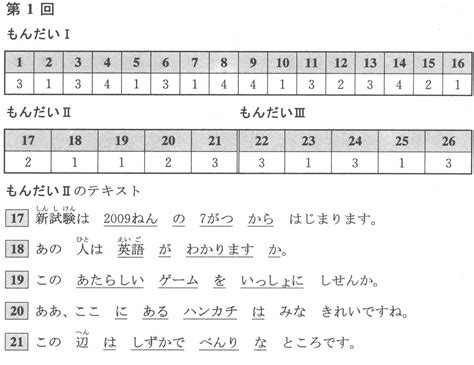 第1回
もんだいⅠ
1 2 3 4 5 6 7 8 9 10 11 12 13 14 15 16
3 1 3 4 1 3 1 4 4 1 3 2 3 4 2 1
もんだいⅡ もんだいⅢ
17 18 19 20 21 22 23 24 25 26
2 1 1 2 3 3 1 3 1 3
もんだいⅡのテキスト
17 新試験は 2009ねん の 7がつ から はじまります。
しんしけん
18 あの 人は 英語 が わかります か。
ひと えいご
19 この あたらしい ゲーム を いっしょに しせんか。
20 ああ、ここ に ある ハンカチ は みな きれいですね。
21 この 辺 は しずかで べんり な ところです。
へん